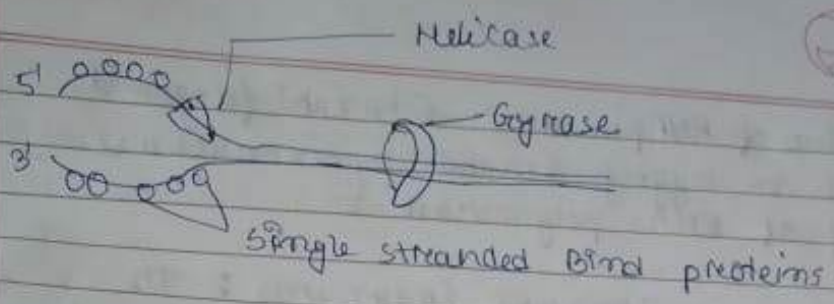 Helicase
5'
Gyrase
3'
Single stranded Bind proteins